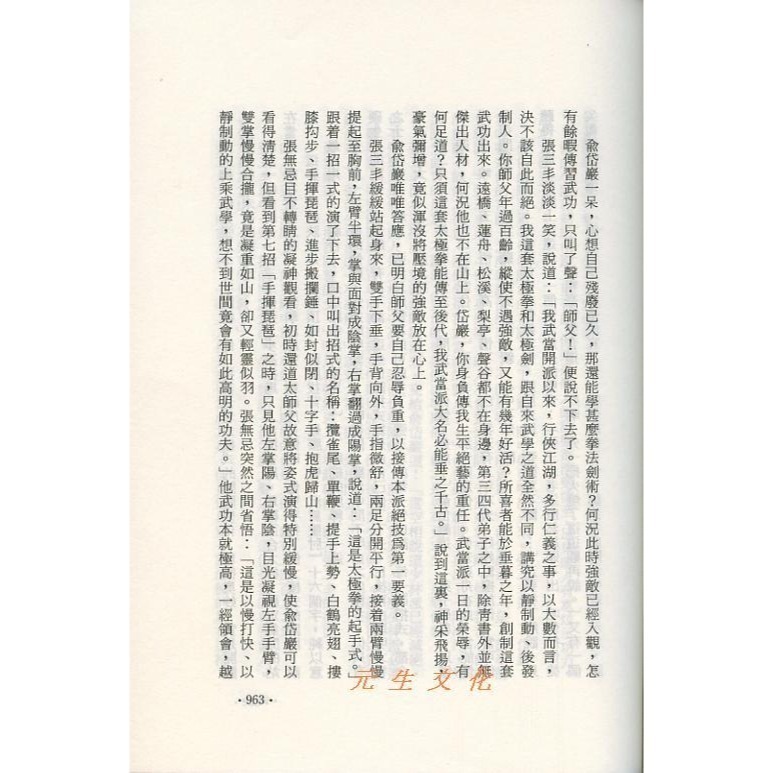 俞岱巖一呆，心想自己殘廢已久，那還能學甚麼拳法劍術？何況此時強敵已經入觀，怎
有餘暇傳習武功，只叫了聲：「師父！」便說不下去了。
張三丰淡淡一笑，說道：「我武當開派以來，行俠江湖，多行仁義之事，以大數而言，
決不該自此而絕。我這套太極拳和太極劍，跟自來武學之道全然不同，講究以靜制動、後發
制人。你師父年過百齡，縱使不遇強敵，又能有幾年好活？所喜者能於垂暮之年，創制這套
武功出來。遠橋、蓮舟、松溪、梨亭、聲谷都不在身邊，第三四代弟子之中，除青書外並無
傑出人材，何況他也不在山上。岱巖，你身負傳我生平絕藝的重任。武當派一日的榮辱，有
何足道？只須這套太極拳能傳至後代，我武當派大名必能垂之千古。」說到這裏，神采飛揚，
豪氣彌增，竟似渾沒將壓境的強敵放在心上。
俞岱巖唯唯答應，已明白師父要自己忍辱負重，以接傳本派絕技爲第一要義。
張三丰緩緩站起身來，雙手下垂，手背向外，手指微舒，兩足分開平行，接着兩臂慢慢
提起至胸前，左臂半環，掌與面對成陰掌，右掌翻過成陽掌，說道：「這是太極拳的起手式。」
跟着一招一式的演了下去，口中叫出招式的名稱：攬雀尾、單鞭、提手上勢、白鶴亮翅、摟
膝拗步、手揮琵琶、進步搬攔錘、如封似閉、十字手、抱虎歸山……
張無忌目不轉睛的凝神觀看，初時還道太師父故意將姿式演得特別緩慢，使俞岱巖可以
看得清楚，但看到第七招「手揮琵琶」之時，只見他左掌陽、右掌陰，目光凝視左手手臂，
雙掌慢慢合攏，竟是凝重如山，卻又輕靈似羽。張無忌突然之間省悟：「這是以慢打快、以
靜制動的上乘武學，想不到世間竟會有如此高明的功夫。」他武功本就極高，一經領會，越
·963·
元生文化